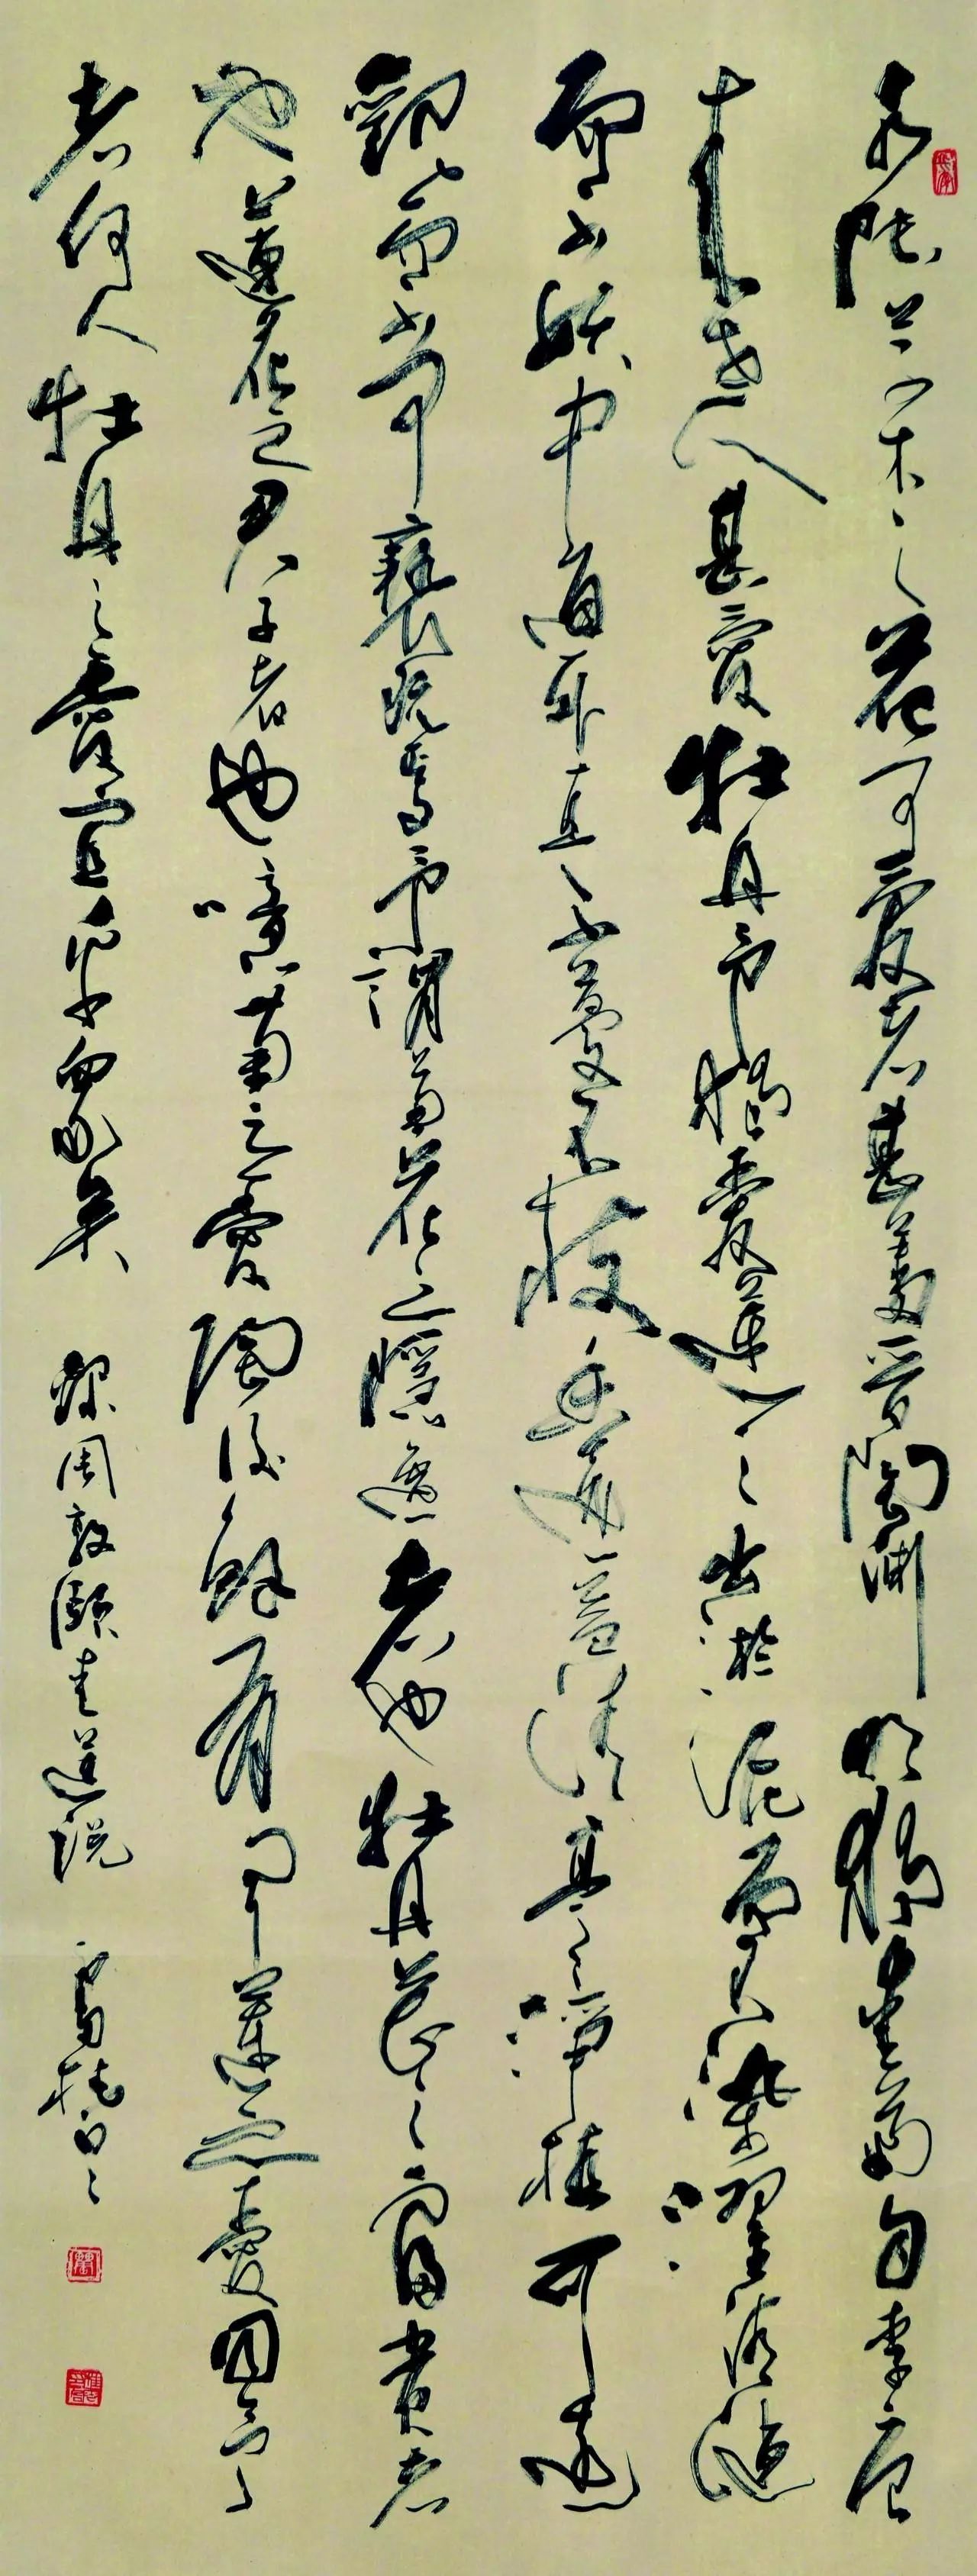 水陸草木之花可愛者甚蕃晉陶淵明獨愛菊自李唐
来世人甚愛牡丹予獨愛蓮之出淤泥而不染濯清漣
而不妖中通外直不蔓不枝香遠益清亭亭淨植可遠
觀而不可褻玩焉予謂菊花之隱逸者也牡丹花之富貴者
也蓮花之君子者也噫菊之愛陶後鮮有聞蓮之愛同予
者何人牡丹之愛宜乎眾矣 錄周敦頤愛蓮說